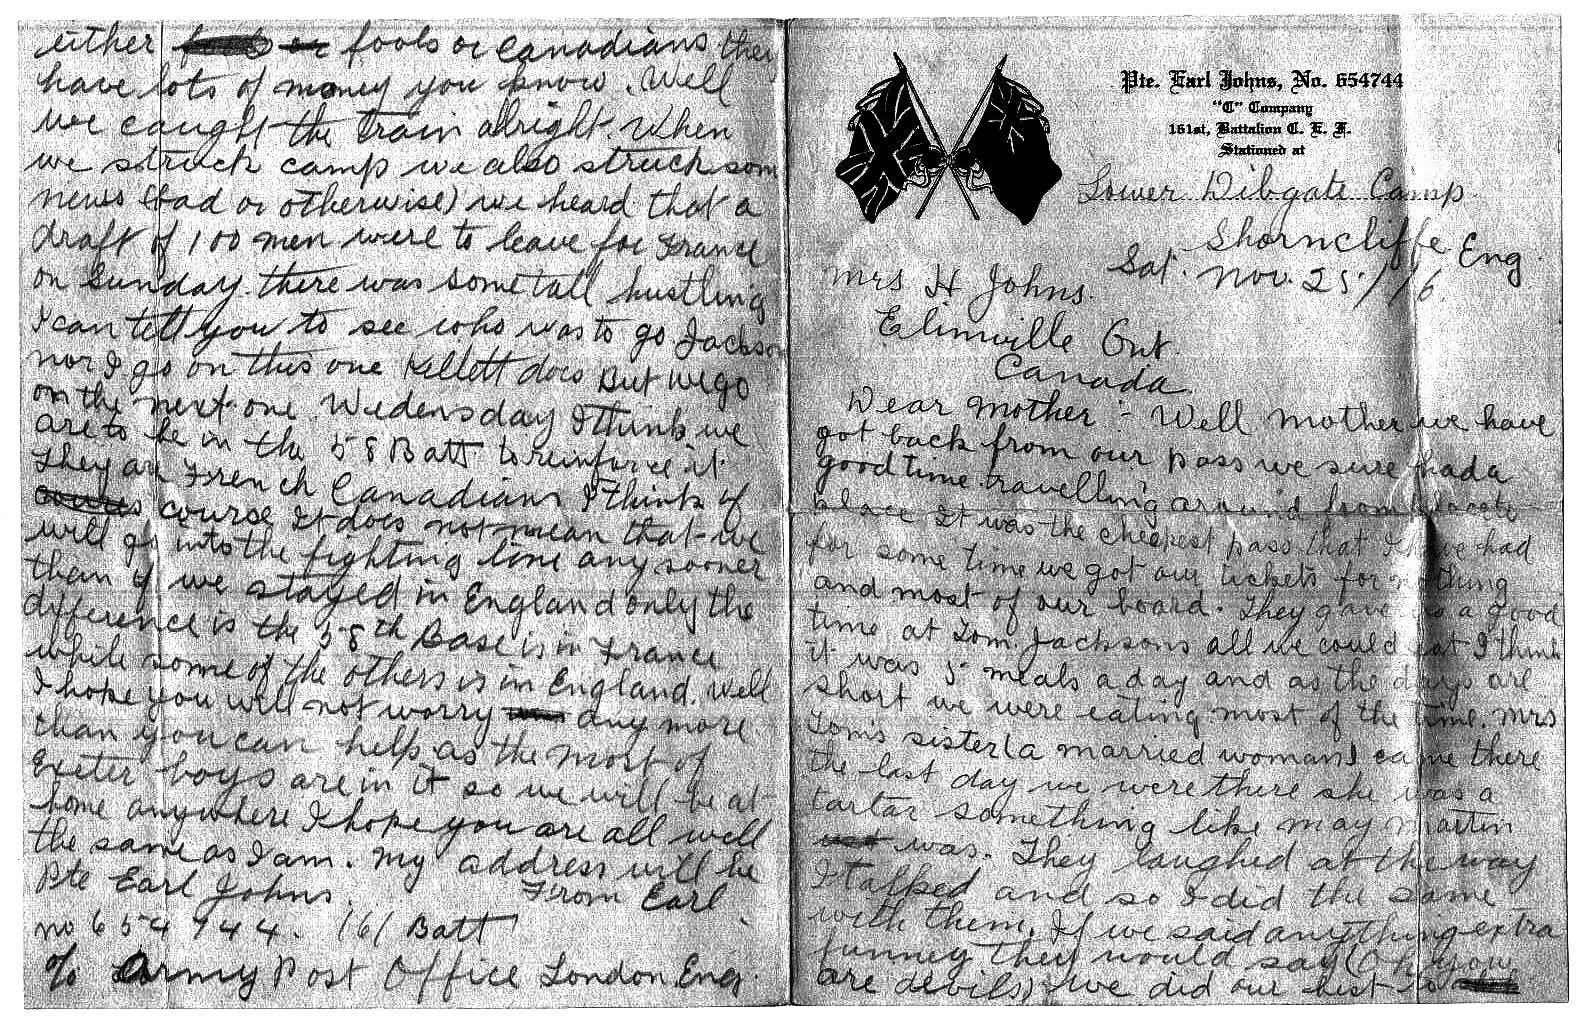 Pte. Earl Johns, No. 654744
"C" Company
161st, Battalion C. E. F.
Stationed at
Lower Dibgate Camp
Shorncliffe Eng
Sat. Nov. 25/16
Mrs H Johns.
Elimville Ont
Canada
Dear Mother:- Well Mother we have
got back from our pass we sure had a
good time travelling around from place to
place It was the cheepest pass that I have had
for some time we got our tickets for nothing
and most of our board. They gave us a good
time at Tom Jacksons all we could eat I think
it was 5 meals a day and as the days are
short we were eating most of the time. Mrs
Toms sister (a married woman) came there
the last day we were there she was a
tartar something like May Martin
was. They laughed at the way
I talked and so I did the same
with them. If we said anything extra
funney they would say (Oh you
are devils) we did our best to
either fools or Canadians they
have lots of money you know. Well
we caught the train alright. When
we struck camp we also struck som
news (bad or otherwise) we heard that a
draft of 100 men were to leave for France
on Sunday. there was some tall hustling
I can tell you to see who was to go Jackson
nor I go on this one Kellett does But we go
on the next one Wedensday I think we
are to be in the 58 Batt to reinforce it
They are French Canadians I think of
course It does not mean that we
will go into the fighting line any sooner
than if we stayed in England only the
difference is the 58th Base is in France
while some of the others is in England. Well
I hope you will not worry any more
than you can help as the most of
Exeter boys are in it so we will be at
home anywhere I hope you are all well
the same as I am. My address will be
Pte Earl Johns. From Earl.
No 654744. 161 Batt
c/o Army Post Office London Eng.